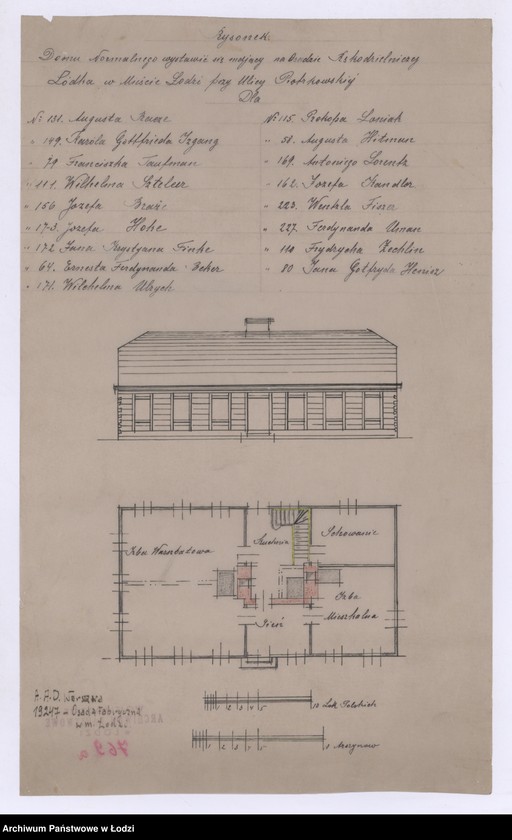 Rysonek
Domu Normalnego wystawić się mający na Osadzie Rękodzielniczej
Lodka w Mieście Lodzi przy Ulicy Piotrkowskiej
Dla
N: 131. Augusta
" 149. Karola Gottfrieda Irgang
" 79 Franciszka Taufman
" 111. Wilhelma
" 156 Jozefa
" 173. Jozefa Hohe
" 172 Jana Krystyana Finke
" 64. Ernesta Ferdynanda Beker
" 171. Wilchelma Ulrych
N: 115. Prokopa Laniak
" 58. Augusta Hitman
" 169. Antoniego Lorentz
" 162. Jozefa Kandler
" 223. Wentzla
" 227. Ferdynanda Uman
" 110 Frydrycha Zechlin
" 80 Jana Gotfryda Heniez
Izba Warsztatowa
Kuchnia
Schowanie
Izba
Mieszkalna
Sień
10 Łok. Polskich
Arszynow
A.A.D. Warszawa
19247 - Osada Fabryczna
w m. Łodzi
769a
Archiwum Państwowe w Łodzi